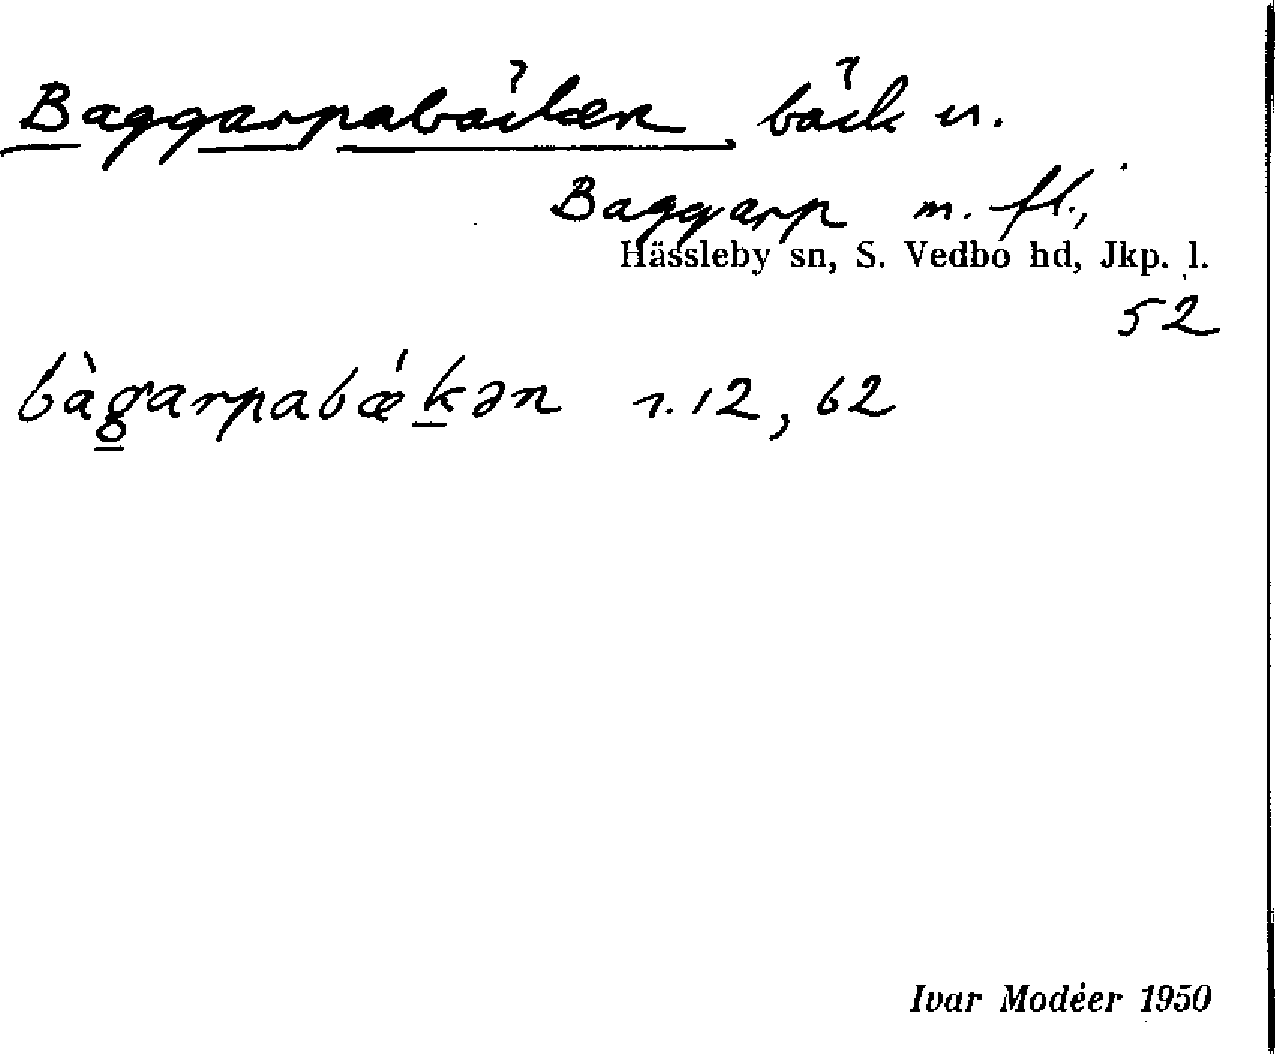 Baggarpabäcken bäck u.
Baggarp m. fl.,
Hässleby sn, S. Vedbo hd, Jkp. l.
52
bàg̲arpabǽk̲ən r. 12, 62
Ivar Modéer 1950